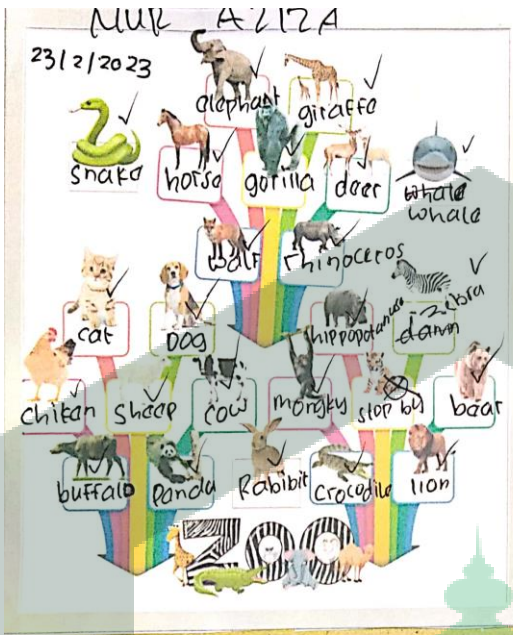 NUR AZIZA
23/2/2023
elephant giraffe
snake horse gorilla deer whale
whale
wolf rhinoceros
cat DOG hippopotamus zibra
damn
chiken sheep cow mongky stop by baar
buffalo panda Rabibit crocodile lion
ZOO